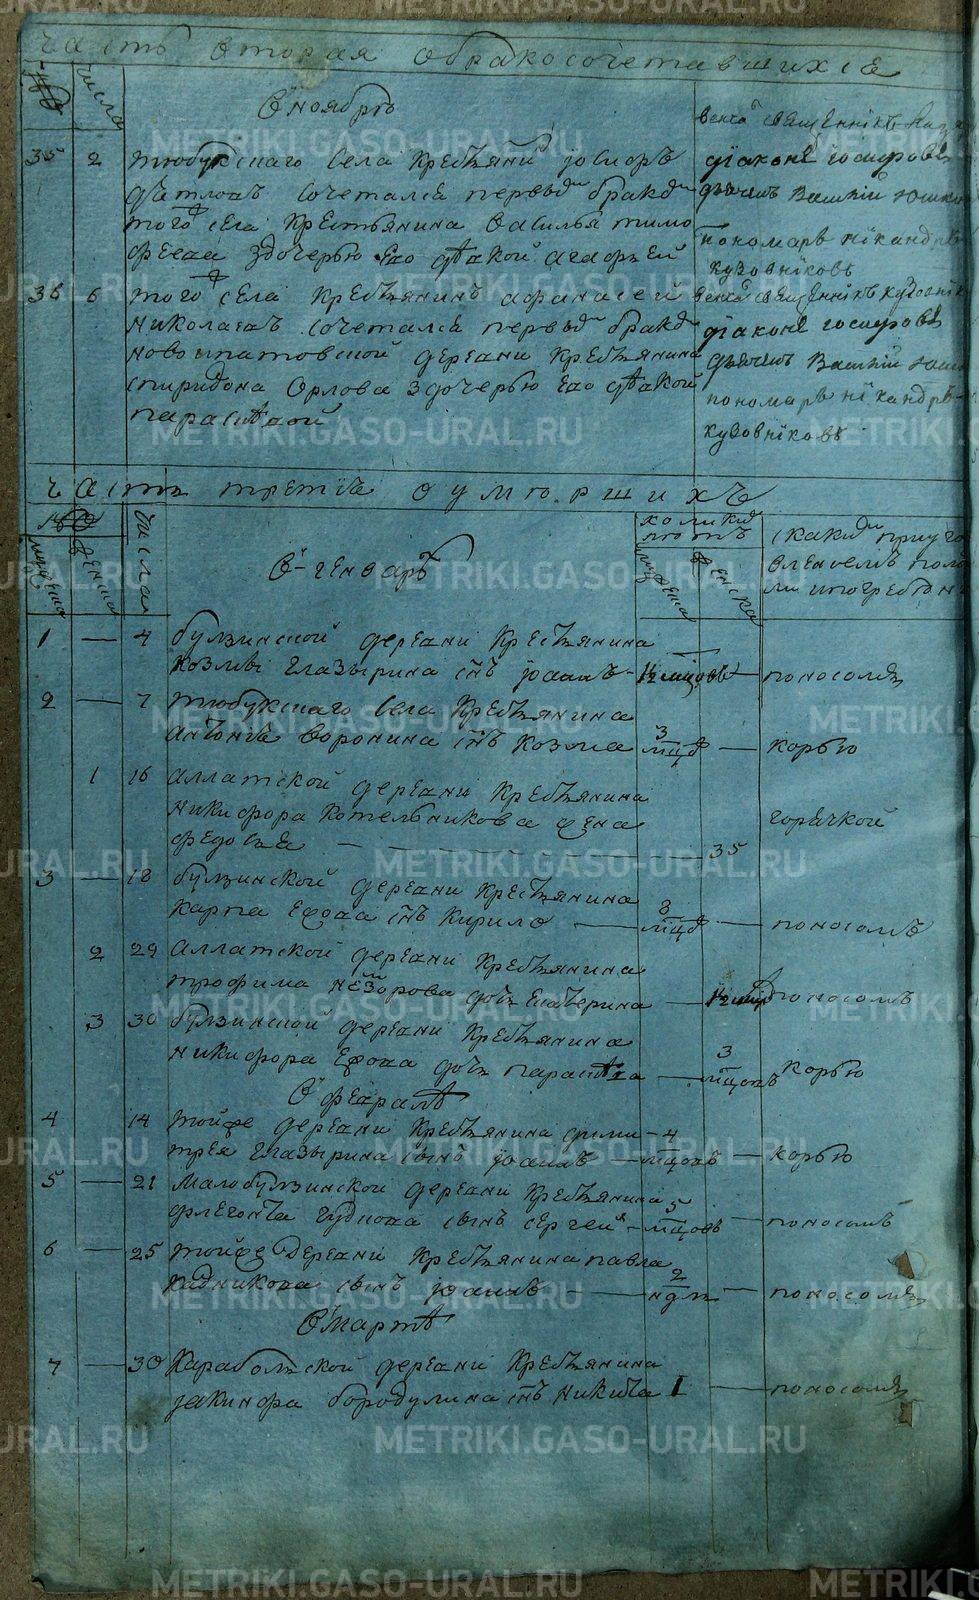 часть вторая обракосочетавшихся
числа
В ноябрѣ
35 2 тюбукскаго села крестьянинъ
сочетался первымъ бракомъ
того села крестьянина Василья тимо
феева здочерью его дѣвкой агафьей
венча священникъ
діаконъ Іосифовъ
дьячекъ Василій Юшков
пономарь нікандръ
кузовніковъ
36 6 того села крестьянинъ афанасей
николаевъ сочетался первымъ бракомъ
новоипатовской деревни крестьянина
спиридона Орлова здочерью его дѣвкой
параскѣвой
венча священникъ кузовник
діаконъ Іосифовъ
дьячекъ Василій
пономарь нікандръ
кузовніковъ
часть третія оумершихъ
числа
мужеска женска
В генварѣ
коликихъ лѣтъ
мужеска женска
скакимъ приуго
ли ипогребон
1 — 4 булзинской деревни крестьянина
козмы глазырина сынъ іоаннъ — 1/2 мцовъ — поносомъ
2 — 7 тюбукскаго села крестьянина
антона воронина сынъ козма 3 мцѣ — корью
1 16 аллакской деревни крестьянина
никифора котельникова жена
федосья — 35 горячкой
3 — 18 булзинской деревни крестьянина
карпа Ежова сынъ кирило — 8 мцѣ — поносомъ
2 29 аллакской деревни крестьянина
трофима дочь Екатерина — 1/2 мцѣ поносомъ
3 30 булзинской деревни крестьянина
никифора Ежова дочь параскѣва — 3 мцовъ корью
В февралѣ
4 14 тойже деревни крестьянина дими — 4
трея глазырина сынъ іоаннъ — мцовъ — корью
5 — 21 малобулзинской деревни крестьянина
флегонта чуднова сынъ сергей — 5 мцовъ — поносомъ
6 — 25 тойже деревни крестьянина павла
кадникова сынъ іоаннъ — 2 ндли — поносомъ
В мартѣ
7 — 30 караболской деревни крестьянина
іакинфа бородулина сынъ никита 1 — поносомъ
METRIKI.GASO-URAL.RU